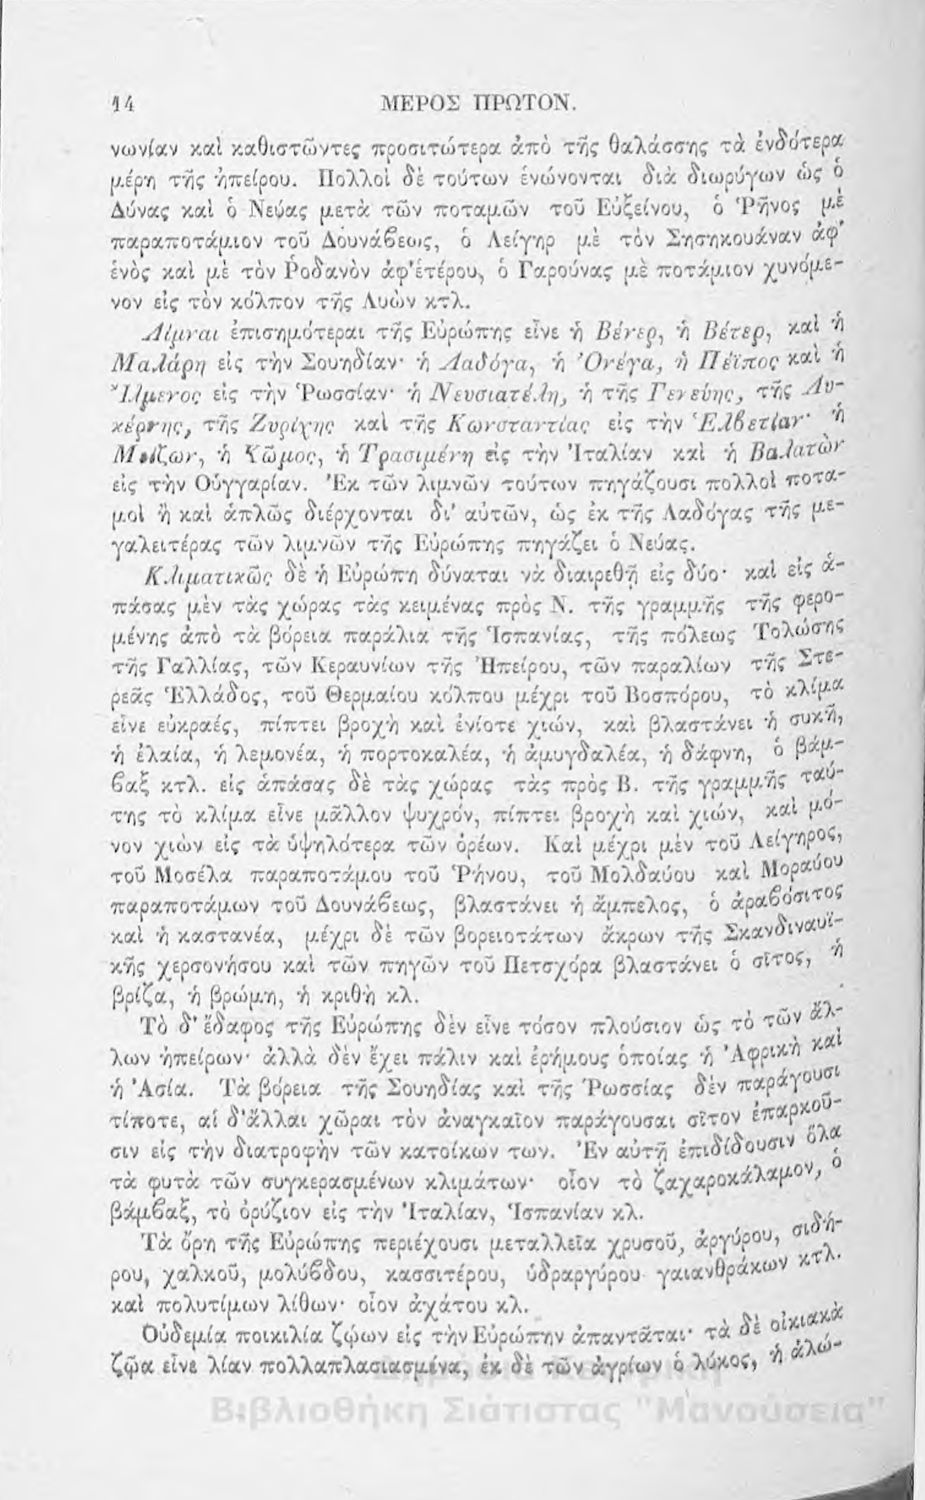 14 ΜΕΡΟΣ ΠΡΩΤΟΝ.
νωνίαν καὶ καθιστῶντες προσιτώτερα ἀπὸ τῆς θαλάσσης τὰ ἐνδότερα
μέρη τῆς ἠπείρου. Πολλοὶ δὲ τούτων ἑνώνονται διὰ διωρύγων ὡς ὁ
Δύνας καὶ ὁ Νεύας μετὰ τῶν ποταμῶν τοῦ Εὐξείνου, ὁ Ῥῆνος μὲ
παραποτάμιον τοῦ Δουνάϐεως, ὁ Λείγηρ μὲ τὸν Σησηκουάναν ἀφ'
ἑνὸς καὶ μὲ τὸν Ῥοδανὸν ἀφ'ἑτέρου, ὁ Γαρούνας μὲ ποτάμιον χυνόμε-
νον εἰς τὸν κόλπον τῆς Λυὼν κτλ.
Λίμναι ἐπισημότεραι τῆς Εὐρώπης εἶνε ἡ Βένερ, ἡ Βέτερ, καὶ ἡ
Μαλάρη εἰς τὴν Σουηδίαν· ἡ Λαδόγα, ἡ Ὀνέγα, ἡ Πέϊπος καὶ ἡ
Ἴλμενος εἰς τὴν Ῥωσσίαν· ἡ Νευσιατέλη, ἡ τῆς Γενεύης, τῆς Λυ-
κέρνης, τῆς Ζυρίχης καὶ τῆς Κωνσταντίας εἰς τὴν Ἑλϐετίαν· ἡ
Μείζων, ἡ Κῶμος, ἡ Τρασιμένη εἰς τὴν Ἰταλίαν καὶ ἡ Βαλατὼν
εἰς τὴν Οὑγγαρίαν. Ἐκ τῶν λιμνῶν τούτων πηγάζουσι πολλοὶ ποτα-
μοὶ ἢ καὶ ἁπλῶς διέρχονται δι' αὐτῶν, ὡς ἐκ τῆς Λαδόγας τῆς με-
γαλειτέρας τῶν λιμνῶν τῆς Εὐρώπης πηγάζει ὁ Νεύας.
Κλιματικῶς δὲ ἡ Εὐρώπη δύναται νὰ διαιρεθῇ εἰς δύο· καὶ εἰς ἁ-
πάσας μὲν τὰς χώρας τὰς κειμένας πρὸς Ν. τῆς γραμμῆς τῆς φερο-
μένης ἀπὸ τὰ βόρεια παράλια τῆς Ἱσπανίας, τῆς πόλεως Τολώσης
τῆς Γαλλίας, τῶν Κεραυνίων τῆς Ἠπείρου, τῶν παραλίων τῆς Στε-
ρεᾶς Ἑλλάδος, τοῦ Θερμαίου κόλπου μέχρι τοῦ Βοσπόρου, τὸ κλίμα
εἶνε εὐκραές, πίπτει βροχὴ καὶ ἐνίοτε χιών, καὶ βλαστάνει ἡ συκῆ,
ἡ ἐλαία, ἡ λεμονέα, ἡ πορτοκαλέα, ἡ ἀμυγδαλέα, ἡ δάφνη, ὁ βάμ-
ϐαξ κτλ. εἰς ἁπάσας δὲ τὰς χώρας τὰς πρὸς Β. τῆς γραμμῆς ταύ-
της τὸ κλίμα εἶνε μᾶλλον ψυχρόν, πίπτει βροχὴ καὶ χιών, καὶ μό-
νον χιὼν εἰς τὰ ὑψηλότερα τῶν ὀρέων. Καὶ μέχρι μὲν τοῦ Λείγηρος,
τοῦ Μοσέλα παραποτάμου τοῦ Ῥήνου, τοῦ Μολδαύου καὶ Μοραύου
παραποτάμων τοῦ Δουνάϐεως, βλαστάνει ἡ ἄμπελος, ὁ ἀραϐόσιτος
καὶ ἡ καστανέα, μέχρι δὲ τῶν βορειοτάτων ἄκρων τῆς Σκανδιναυϊ-
κῆς χερσονήσου καὶ τῶν πηγῶν τοῦ Πετσχόρα βλαστάνει ὁ σῖτος, ἡ
βρίζα, ἡ βρώμη, ἡ κριθὴ κλ.
Τὸ δ' ἔδαφος τῆς Εὐρώπης δὲν εἶνε τόσον πλούσιον ὡς τὸ τῶν ἄλ-
λων ἠπείρων· ἀλλὰ δὲν ἔχει πάλιν καὶ ἐρήμους ὁποίας ἡ Ἀφρικὴ καὶ
ἡ Ἀσία. Τὰ βόρεια τῆς Σουηδίας καὶ τῆς Ῥωσσίας δὲν παράγουσι
τίποτε, αἱ δ'ἄλλαι χῶραι τὸν ἀναγκαῖον παράγουσαι σῖτον ἐπαρκοῦ-
σιν εἰς τὴν διατροφὴν τῶν κατοίκων των. Ἐν αὐτῇ ἐπιδίδουσιν ὅλα
τὰ φυτὰ τῶν συγκερασμένων κλιμάτων· οἷον τὸ ζαχαροκάλαμον, ὁ
βάμϐαξ, τὸ ὀρύζιον εἰς τὴν Ἰταλίαν, Ἱσπανίαν κλ.
Τὰ ὄρη τῆς Εὐρώπης περιέχουσι μεταλλεῖα χρυσοῦ, ἀργύρου, σιδή-
ρου, χαλκοῦ, μολύϐδου, κασσιτέρου, ὑδραργύρου γαιανθράκων κτλ.
καὶ πολυτίμων λίθων· οἷον ἀχάτου κλ.
Οὐδεμία ποικιλία ζῴων εἰς τὴν Εὐρώπην ἀπαντᾶται· τὰ δὲ οἰκιακὰ
ζῷα εἶνε λίαν πολλαπλασιασμένα, ἐκ δὲ τῶν ἀγρίων ὁ λύκος, ἡ ἀλώ-
Βιβλιοθήκη Σιάτιστας "Μανούσεια"